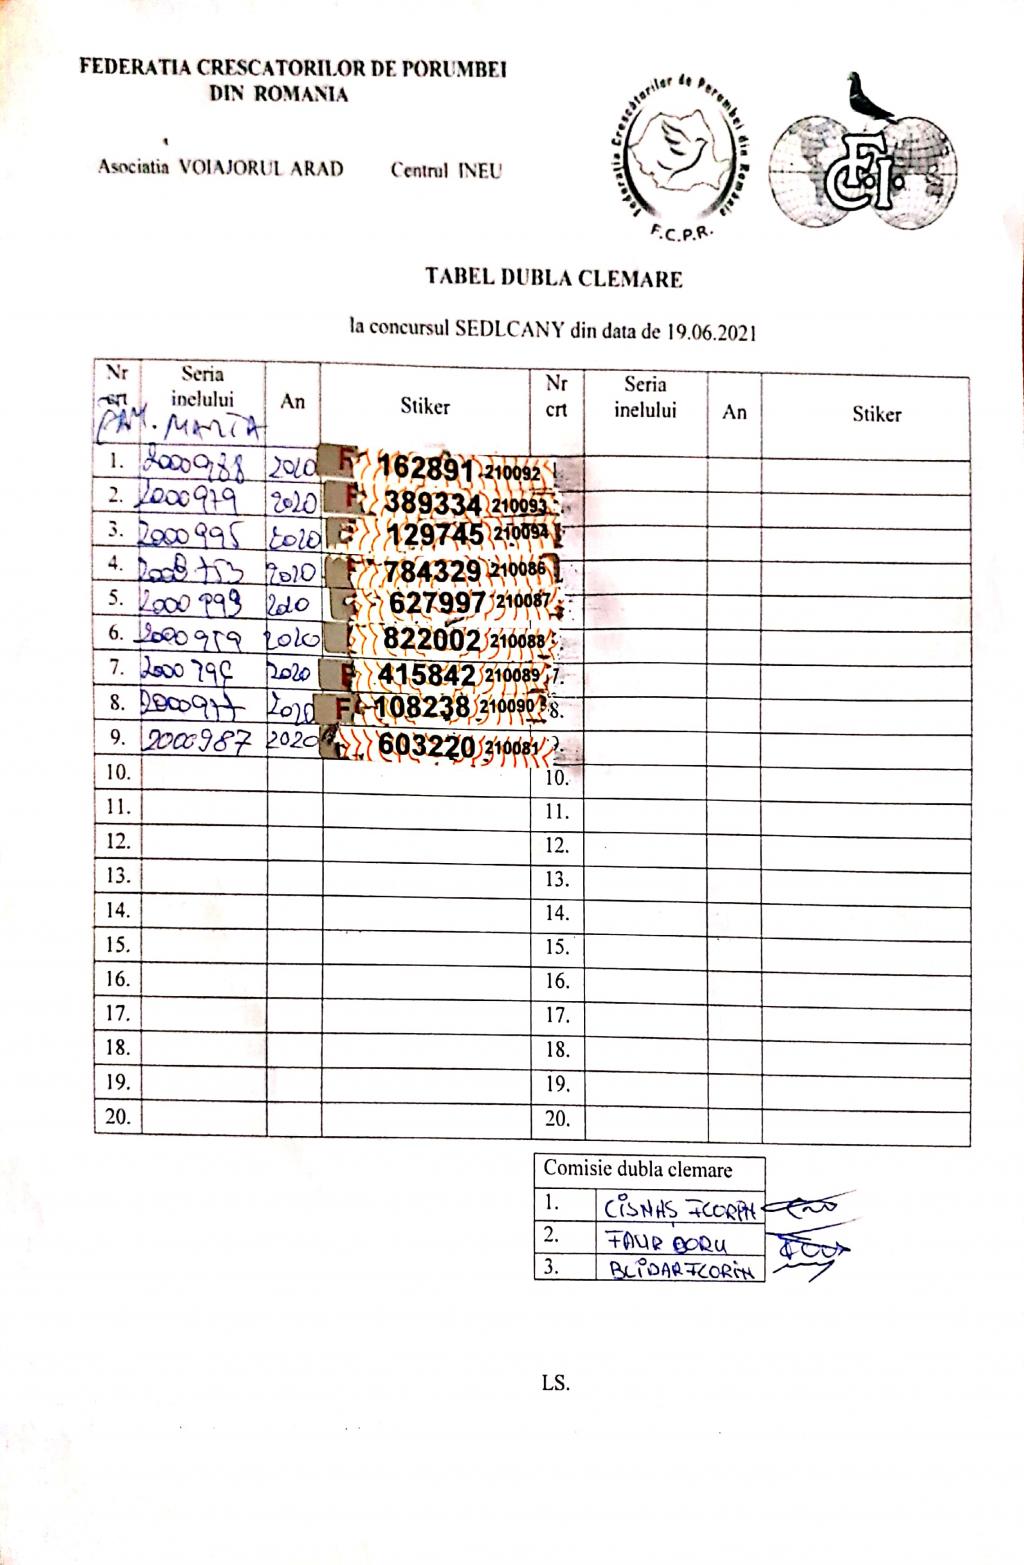 FEDERATIA CRESCATORILOR DE PORUMBEI
DIN ROMANIA
Asociatia VOIAJORUL ARAD Centrul INEU
Federatia Crescătorilor de Porumbei din România
F.C.P.R.
F.C.I.
TABEL DUBLA CLEMARE
la concursul SEDLCANY din data de 19.06.2021
Nr crt Seria inelului An Stiker Nr crt Seria inelului An Stiker
PAM. MARTA
1. 2000988 2020 F 162891 210092
2. 2000979 2020 F 389334 210093
3. 2000995 2020 129745 210094
4. 2020 F 784329 210086
5. 2020 627997 210087
6. 2020 822002 210088
7. 2020 415842 210089 7.
8. 2000977 2020 F 108238 210090 8.
9. 2000987 2020 603220 210081
10. 10.
11. 11.
12. 12.
13. 13.
14. 14.
15. 15.
16. 16.
17. 17.
18. 18.
19. 19.
20. 20.
Comisie dubla clemare
1. CISMAS FLORIN
2. FAUR DORU
3. BLIDAR FLORIN
LS.